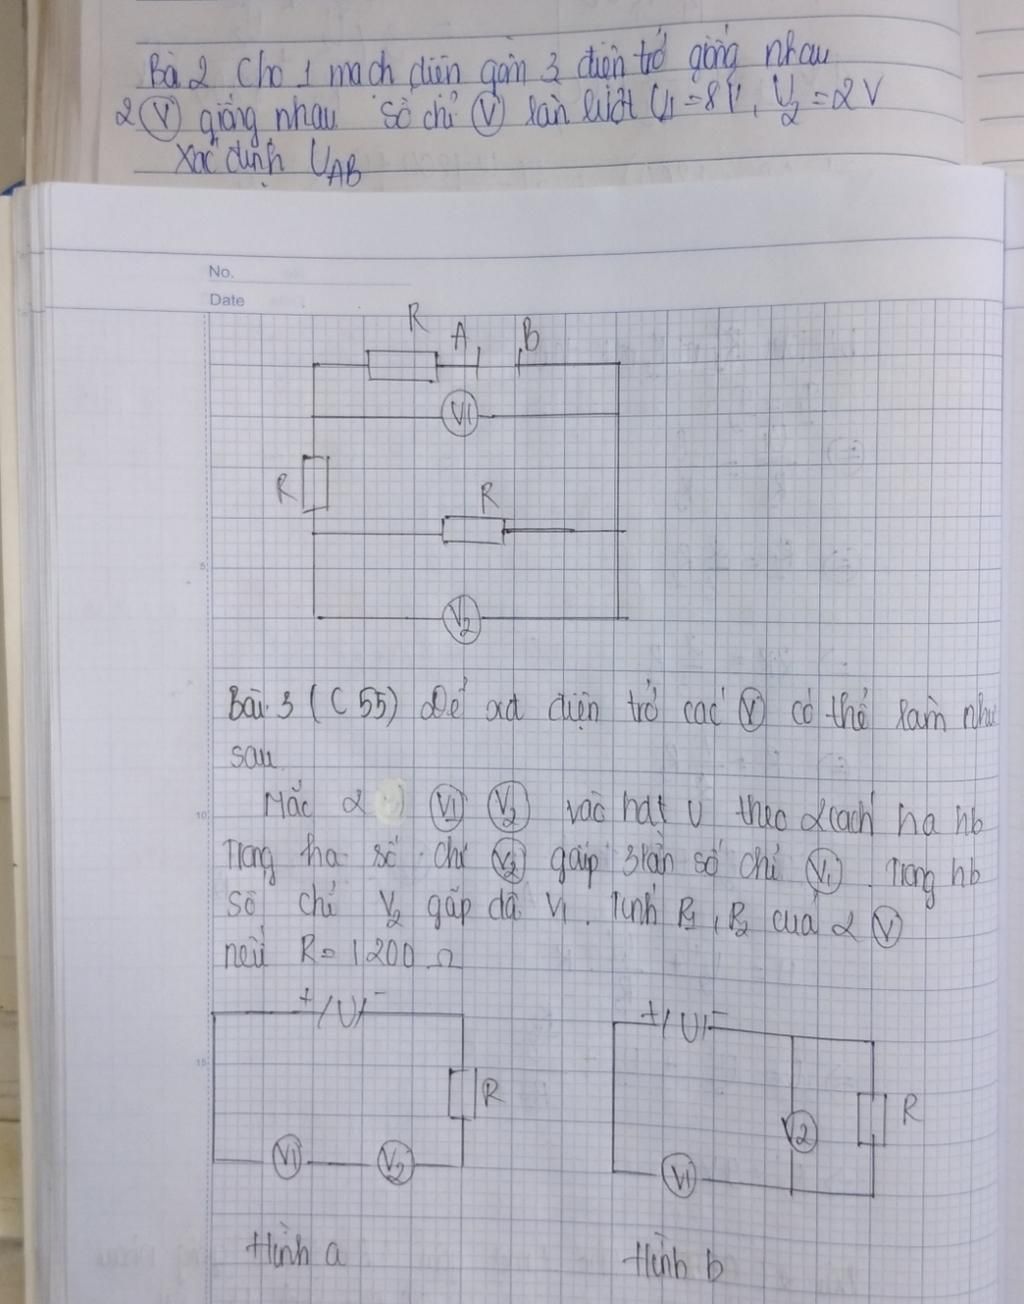 Bài 2 Cho 1 mạch điện gồm 3 điện trở giống nhau
2 (V) giống nhau số chỉ (V) lần lượt U1 = 8V, U2 = 2V
Xác định UAB
No.
Date
R A B
V1
R R
V2
5
Bài 3 (C 55) Để xđ điện trở các (V) có thể làm như
sau
10
Mắc 2 (V1) (V2) vào hđt U theo 2 cách ha hb
Trong ha số chỉ (V2) gấp 3 lần số chỉ (V1). Trong hb
số chỉ V2 gấp đôi V1. Tính R1, R2 của 2 (V)
nếu R = 1200 Ω
+ U - + U -
15
R R
V1 V2 V2 V1
Hình a Hình b